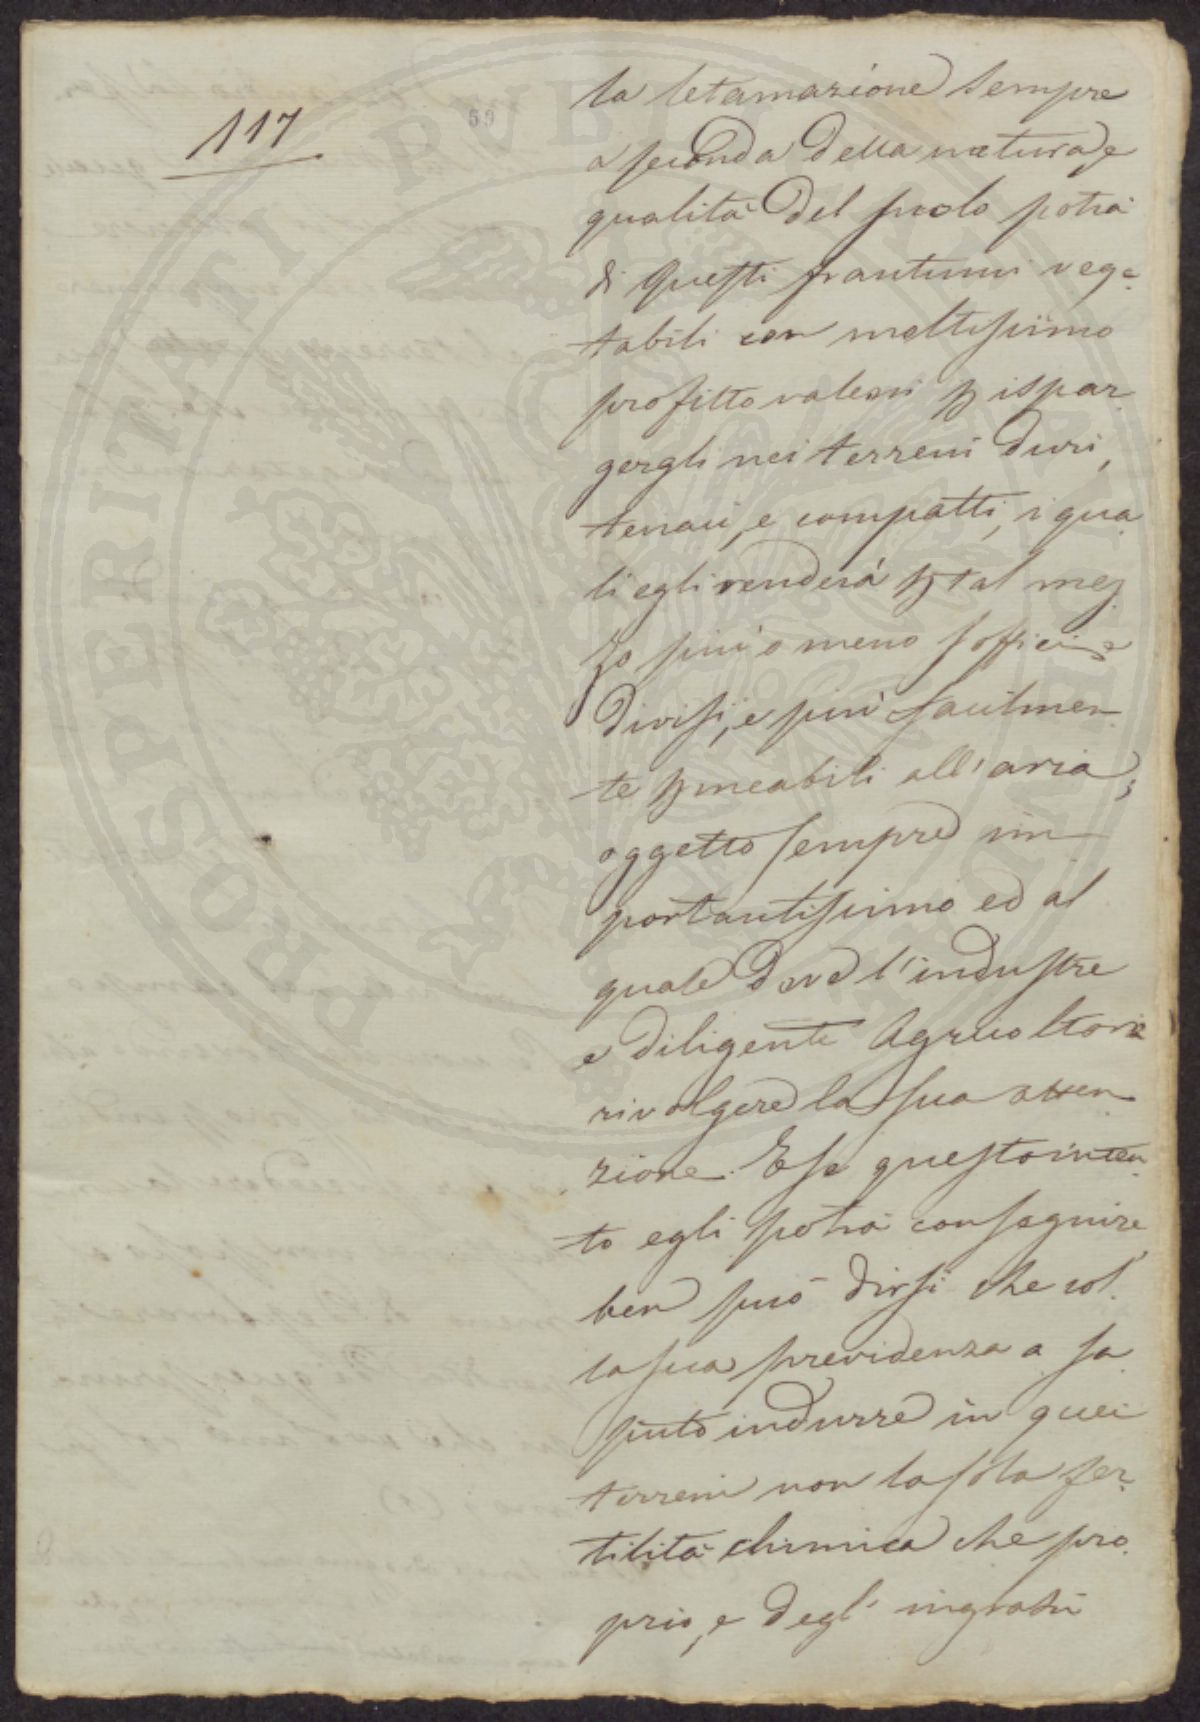 117
59
la letamazione sempre
a seconda della natura, e
qualità del suolo potrà
di questi frantumi vege-
tabili con moltissimo
profitto valersi per ispar-
gergli nei terreni duri,
tenaci, e compatti, i qua
li egli renderà per tal mez
zo più o meno soffici e
divisi, e più facilmen-
te permeabili all'aria;
oggetto sempre im
portantissimo ed al
quale deve l'industre
e diligente Agricoltore
rivolgere la sua atten
zione. E se questo inten
to egli potrà conseguire,
ben può dirsi che col-
la sua previdenza a sa
puto indurre in quei
terreni non la sola fer-
tilità chimica che pro-
prio, e degl' ingrassi
PROSPERITATI PUBLICAE